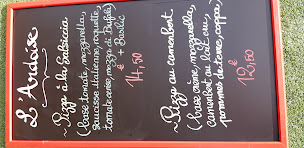 L'Ardoise
~ Pizza à la Salsiccia
(base tomate, mozzarella,
saucisse italienne, roquette,
tomate cerise, mozza di Bufala)
+ Basilic
14,50
€
~ Pizza au camembert
(base crème, mozzarella,
camembert au lait cru,
pommes de terre, coppa)
€
12,50